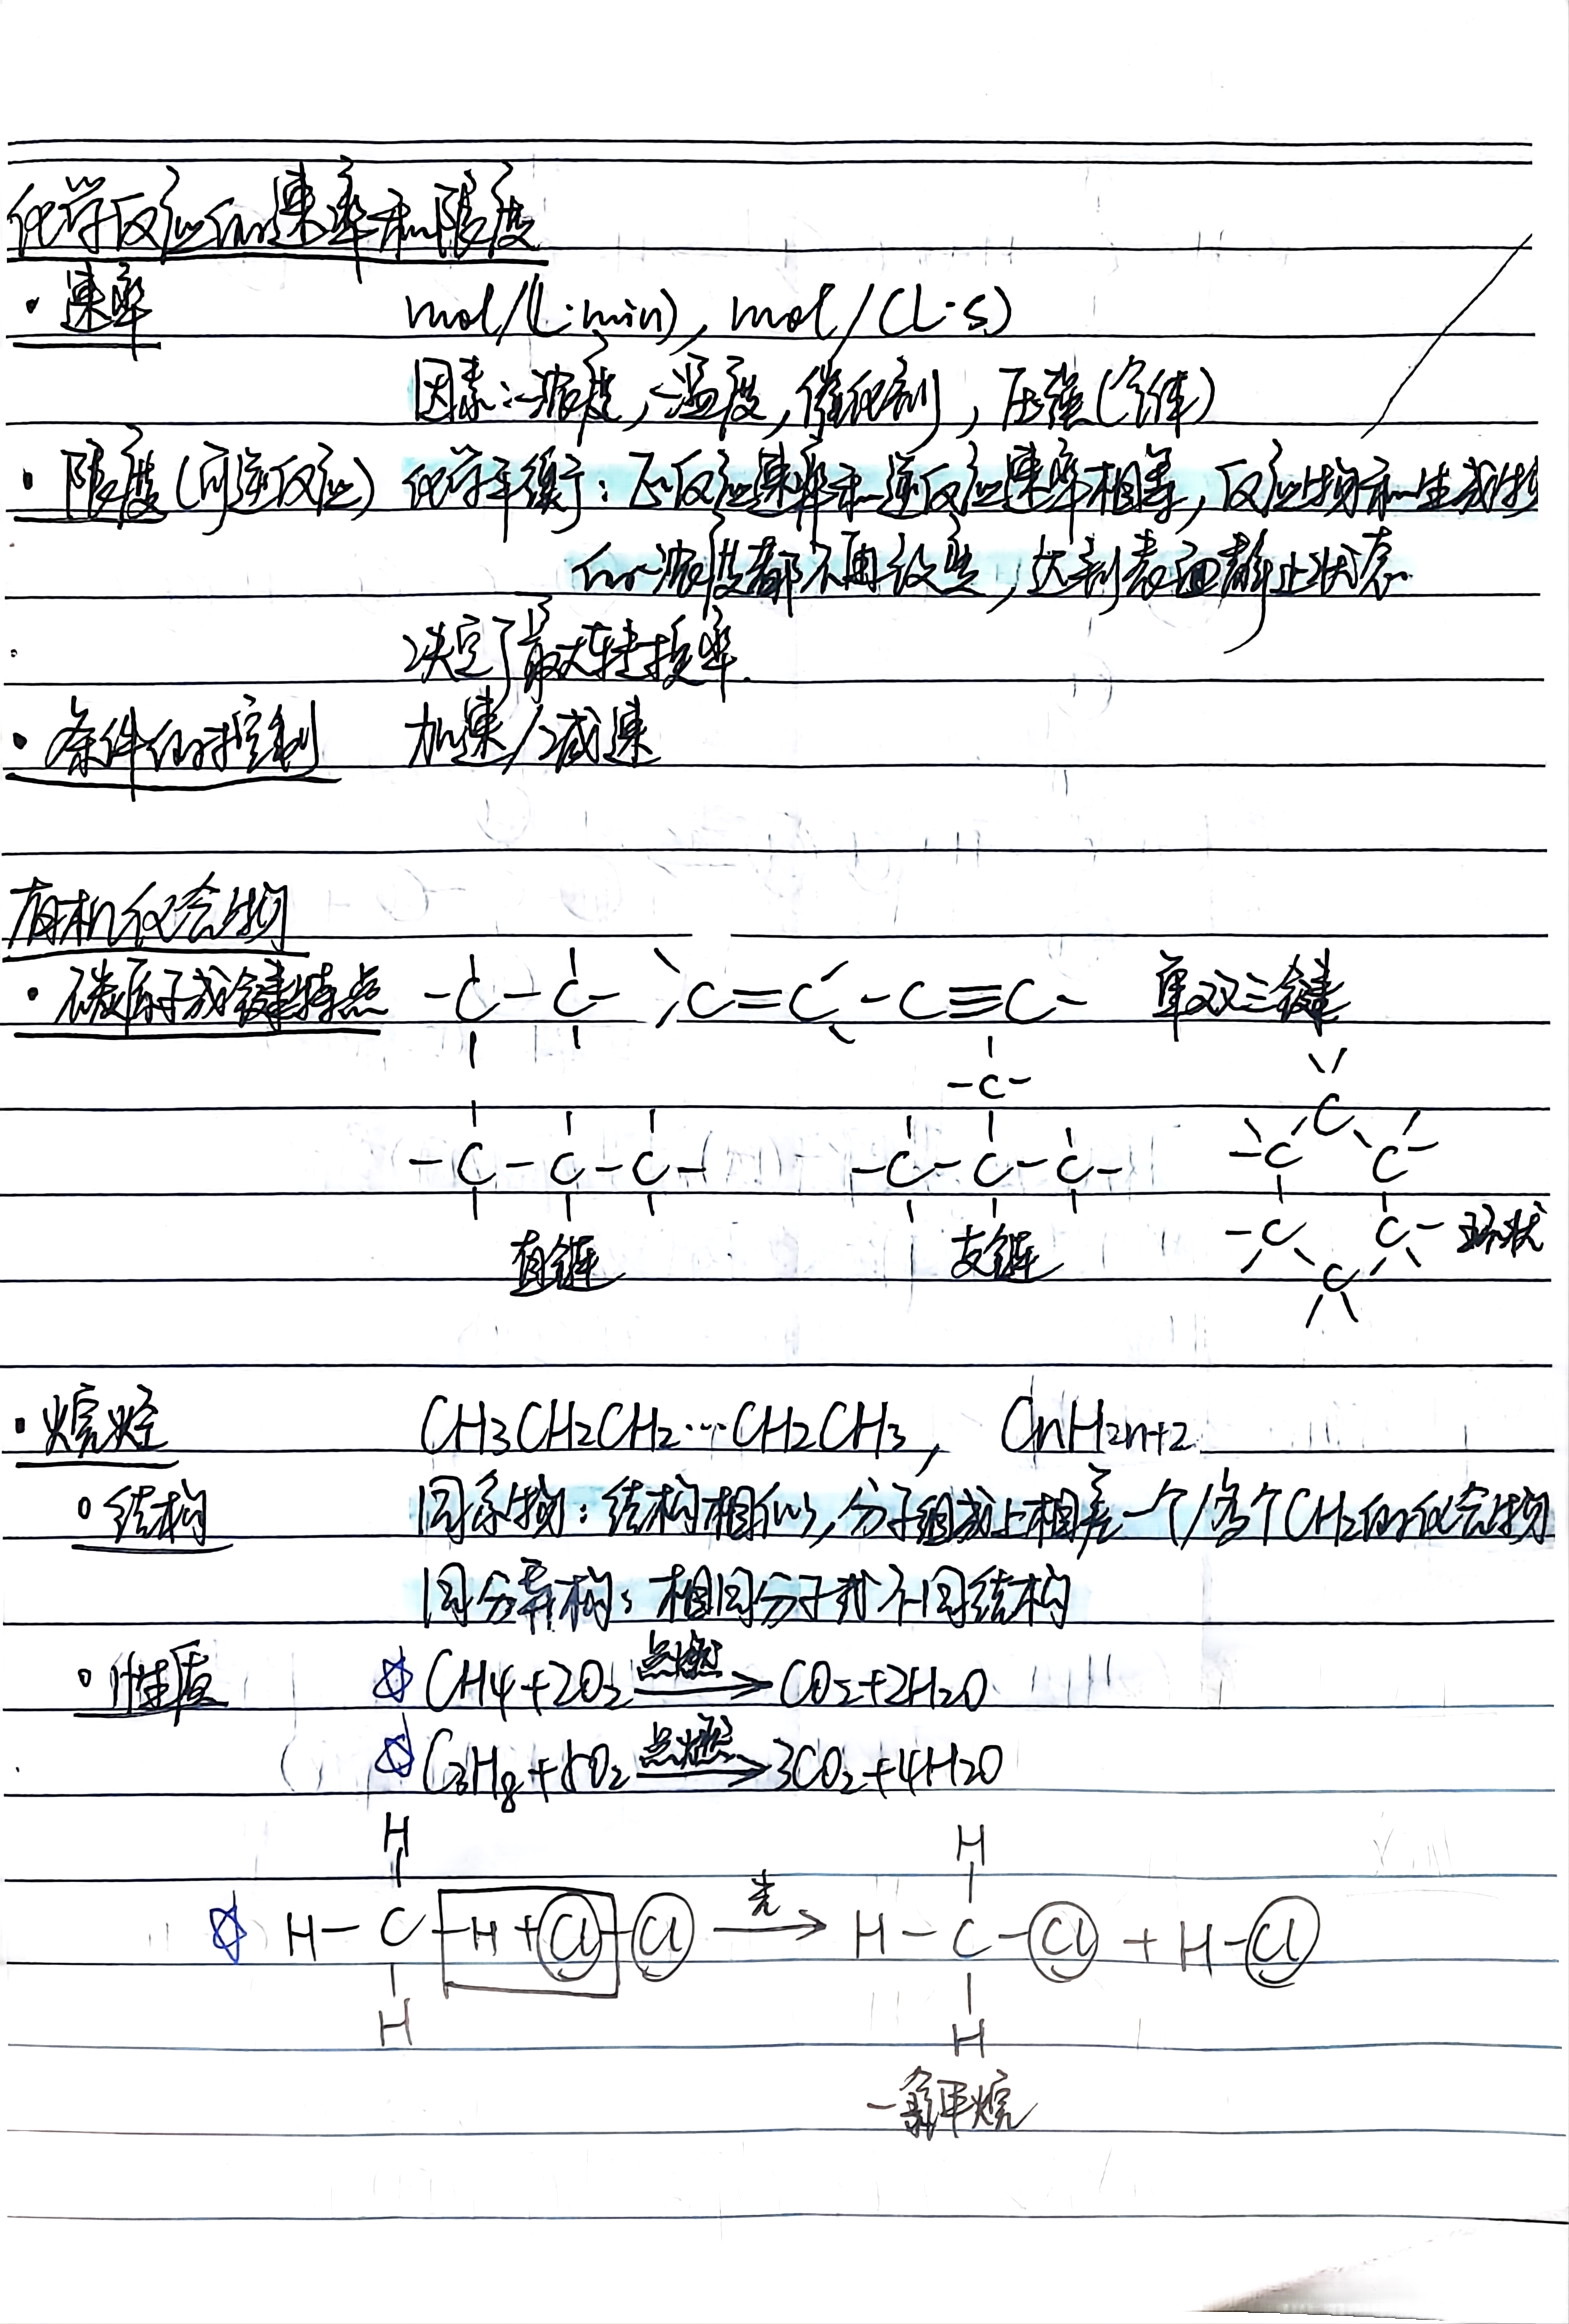 化学反应的速率和限度
· 速率 mol/(L·min), mol/(L·s)
因素：浓度，温度，催化剂，压强(气体)
· 限度(可逆反应) 化学平衡：正反应速率和逆反应速率相等，反应物和生成物
的浓度都不再改变，达到表面静止状态.
决定了最大转换率.
· 条件的控制 加速/减速
有机化合物
· 碳原子成键特点 -C-C- C=C -C≡C- 单双三键
-C-
-C-C-C- -C-C-C- C C C
直链 支链 C C C 环状
· 烷烃 CH3CH2CH2…CH2CH3, CnH2n+2
◦ 结构 同系物：结构相似，分子组成上相差一个/多个CH2的化合物
同分异构：相同分子式不同结构
◦ 性质 ☆ CH4+2O2 点燃→ CO2+2H2O
☆ C3H8+5O2 点燃→ 3CO2+4H2O
H H
☆ H-C-H+Cl-Cl 光→ H-C-Cl + H-Cl
H H
一氯甲烷